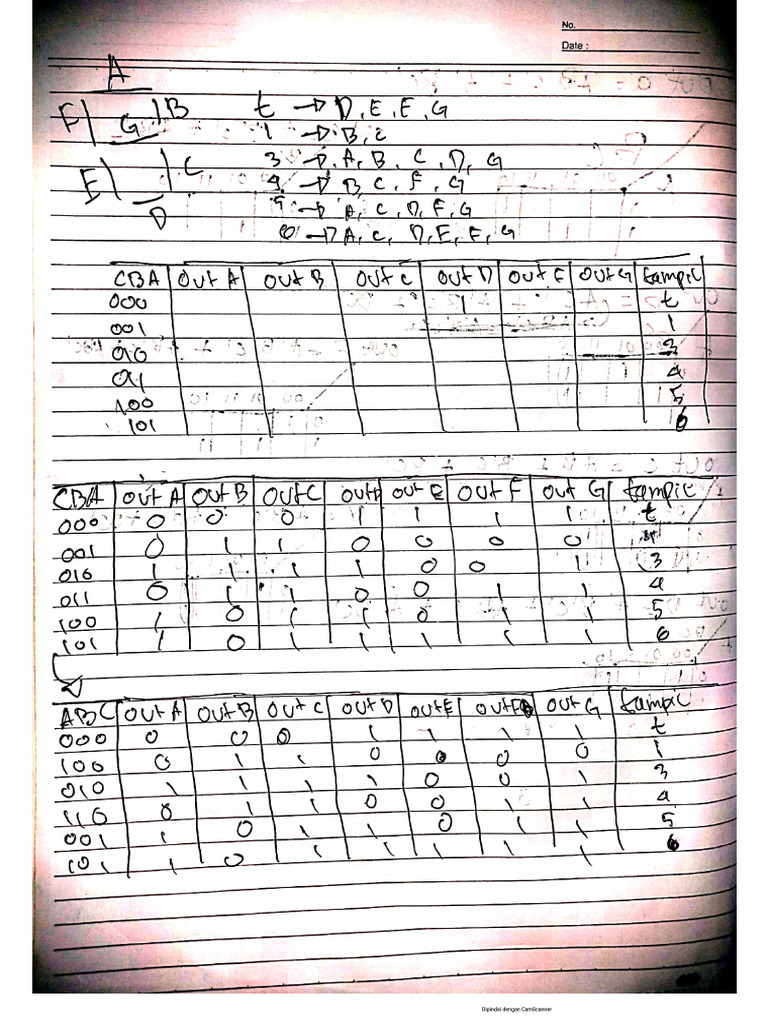 No.
Date :
A
F | G | B t → D, E, F, G
1 → B, C
E | | C 3 → A, B, C, D, G
D 4 → B, C, F, G
5 → A, C, D, F, G
6 → A, C, D, E, F, G
CBA | out A | out B | out C | out D | out F | out G | tampil
000 1 t
001 1
010 3
011 4
100 5
101 6
CBA | out A | out B | out C | out D | out E | out F | out G | tampil
000 0 0 0 1 1 1 1 t
001 0 1 1 0 0 0 0 1
010 1 1 1 1 0 0 1 3
011 0 1 1 0 0 1 1 4
100 1 0 1 1 0 1 1 5
101 1 0 1 1 1 1 1 6
ABC | out A | out B | out C | out D | out E | out F | out G | tampil
000 0 0 0 1 1 1 1 t
100 0 1 1 0 0 0 0 1
010 1 1 1 1 0 0 1 3
110 0 1 1 0 0 1 1 4
001 1 0 1 1 0 1 1 5
101 1 0 1 1 1 1 1 6
Dipindai dengan CamScanner